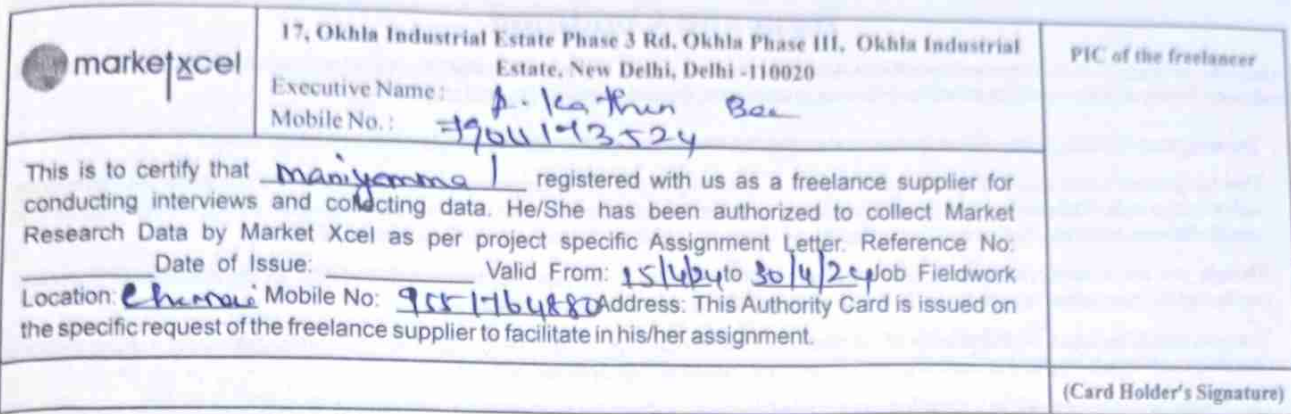 marketxcel
17, Okhla Industrial Estate Phase 3 Rd, Okhla Phase III, Okhla Industrial
Estate, New Delhi, Delhi -110020
Executive Name:
Mobile No.:
PIC of the freelancer
This is to certify that registered with us as a freelance supplier for
conducting interviews and collecting data. He/She has been authorized to collect Market
Research Data by Market Xcel as per project specific Assignment Letter. Reference No:
Date of Issue: Valid From: 15/4/24 to 30/4/24 Job Fieldwork
Location: Chennai Mobile No: Address: This Authority Card is issued on
the specific request of the freelance supplier to facilitate in his/her assignment.
(Card Holder's Signature)